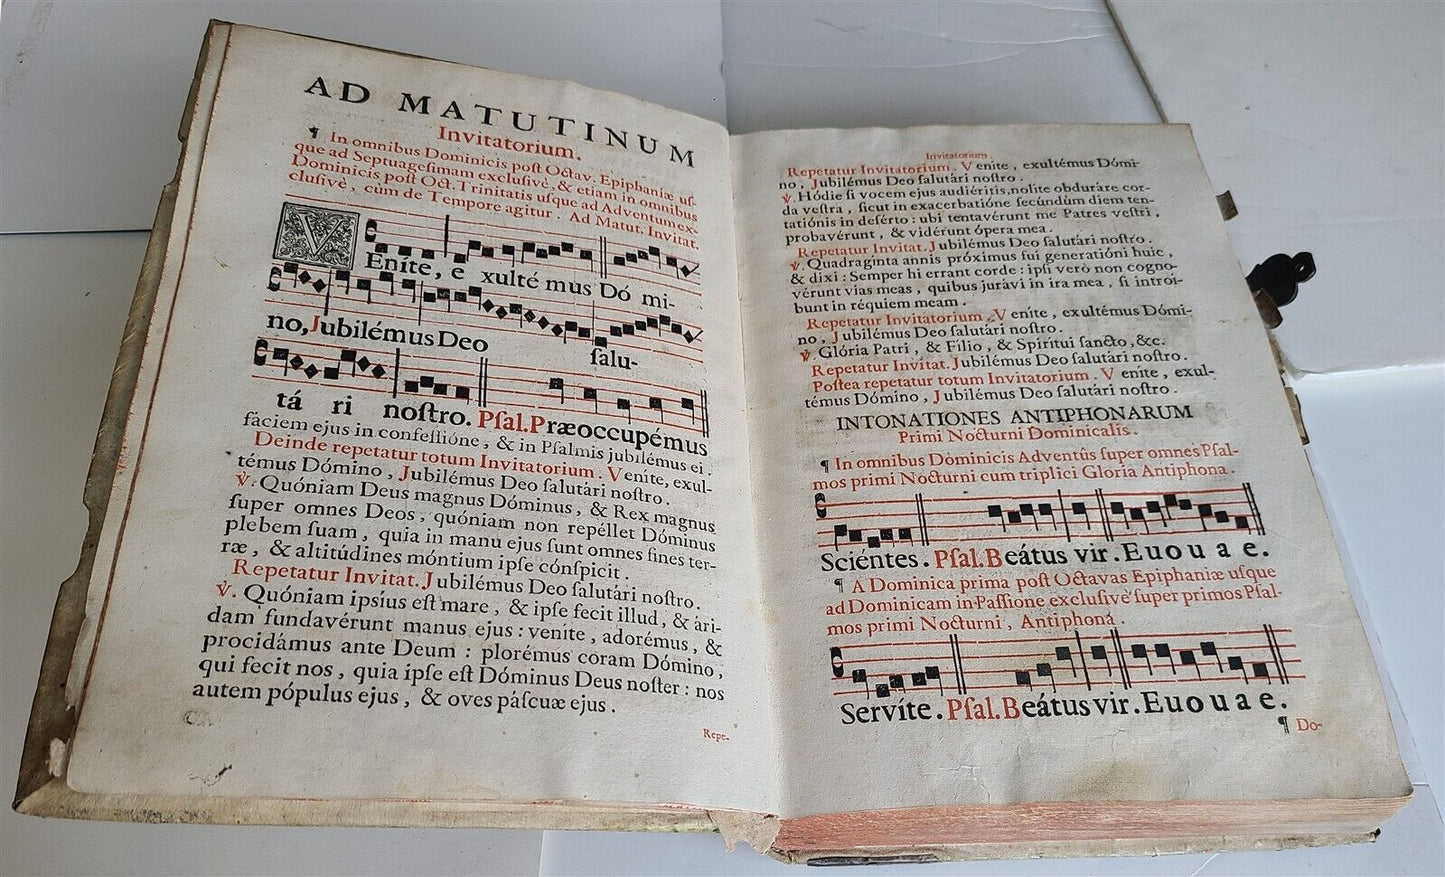 AD MATUTINUM
Invitatorium.
¶ In omnibus Dominicis poſt Octav. Epiphaniæ uſ-
que ad Septuageſimam excluſivè, & etiam in omnibus
Dominicis poſt Oct. Trinitatis uſque ad Adventum ex-
cluſivè, cùm de Tempore agitur. Ad Matut. Invitat.
VEníte, e xulté mus Dó mi-
no, Jubilémus Deo ſalu-
tá ri noſtro. Pſal. Præoccupémus
fáciem ejus in confeſſióne, & in Pſalmis jubilémus ei.
Deinde repetatur totum Invitatorium. Veníte, exul-
témus Dómino, Jubilémus Deo ſalutári noſtro.
℣. Quóniam Deus magnus Dóminus, & Rex magnus
ſuper omnes Deos, quóniam non repéllet Dóminus
plebem ſuam, quia in manu ejus ſunt omnes fines ter-
ræ, & altitúdines móntium ipſe cónſpicit.
Repetatur Invitat. Jubilémus Deo ſalutári noſtro.
℣. Quóniam ipsíus eſt mare, & ipſe fecit illud, & ári-
dam fundavérunt manus ejus: veníte, adorémus, &
procidámus ante Deum: plorémus coram Dómino,
qui fecit nos, quia ipſe eſt Dóminus Deus noſter: nos
autem pópulus ejus, & oves páſcuæ ejus.
Repe-
Invitatorium.
Repetatur Invitatorium. Veníte, exultémus Dómi-
no, Jubilémus Deo ſalutári noſtro.
℣. Hódie ſi vocem ejus audiéritis, nolíte obduráre cor-
da veſtra, ſicut in exacerbatióne ſecúndùm diem ten-
tatiónis in deſérto: ubi tentavérunt me Patres veſtri,
probavérunt, & vidérunt ópera mea.
Repetatur Invitat. Jubilémus Deo ſalutári noſtro.
℣. Quadragínta annis próximus fui generatióni huic,
& dixi: Semper hi errant corde: ipſi verò non cogno-
vérunt vias meas, quibus jurávi in ira mea, ſi introí-
bunt in réquiem meam.
Repetatur Invitatorium. Veníte, exultémus Dómi-
no, Jubilémus Deo ſalutári noſtro.
℣. Glória Patri, & Fílio, & Spirítui ſancto, &c.
Repetatur Invitat. Jubilémus Deo ſalutári noſtro.
Poſtea repetatur totum Invitatorium. Veníte, exul-
témus Dómino, Jubilémus Deo ſalutári noſtro.
INTONATIONES ANTIPHONARUM
Primi Nocturni Dominicalis.
¶ In omnibus Dominicis Adventûs ſuper omnes Pſal-
mos primi Nocturni cum triplici Gloria Antiphona.
Sciéntes. Pſal. Beátus vir. E u o u a e.
¶ A Dominica prima poſt Octavas Epiphaniæ uſque
ad Dominicam in Paſſione excluſivè ſuper primos Pſal-
mos primi Nocturni, Antiphona.
Servíte. Pſal. Beátus vir. E u o u a e.
¶ Do-